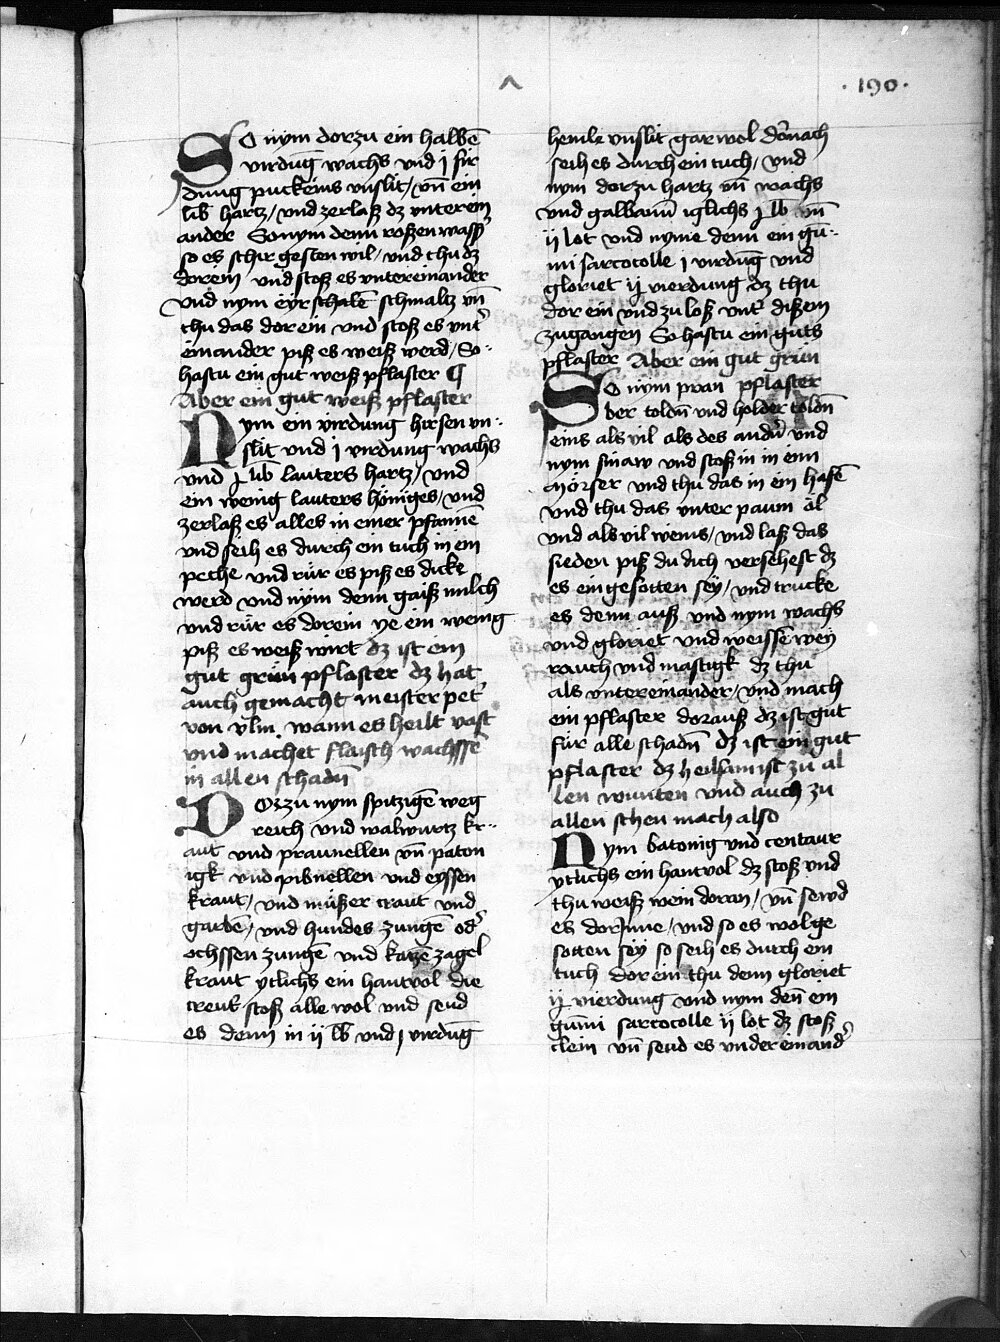 ·190·
SO nym dorzu ein halbē
virdūg wachs vnd j fir
dung puckeins vnslit / vn̄ ein
lib hartz / vnd zerlaß dz vnterem
ander So nym denn roßen wass
so es schir gesten wil / vnd thu dz
dorein vnd stoß es vntereinander
Vnd nym eyrschalē schmaltz vn̄
thu das dorein vnd stoß es vnt
einander piß es weiß werd / So
hastu ein gut weiß pflaster ¶
Aber ein gut weiß pflaster
Nym ein virdung hirsen vn
slit vnd j virdung wachs
vnd j lib lauters hartz / vnd
ein wenig lauters höniges / vnd
zerlaß es alles in einer pfannē
vnd seih es durch ein tuch in ein
peche vnd rür es piß es dicke
werd vnd nym denn gaiß milch
vnd rür es dorein ye ein wenig
piß es weiß wirt dz ist ein
gut grün pflaster dz hat
auch gemacht meister pet
von vlm . wann es heilt vast
vnd machet flaisch wachssē
in allen schadn̄
DOzzu nym spitzigē weg
reich vnd walwurtz kr
aut vnd praunellen vn̄ paton
igk vnd pibnellen vnd eyssen
kraut / vnd müßer craut vnd
garbē / vnd hundes zungē od
ochssen zungē vnd katzē zagel
kraut ytlichs ein hantvol die
creut stoß alle wol vnd seud
es denn in ij lb vnd j virdūg
hemlz vnslit gar wol dornach
seih es durch ein tuch / vnd
nym dorzu hartz vn̄ wachs
vnd galbanū iglichs j lb vn̄
ij lot vnd nyme denn ein gū
mi sarcocolle j virdūg vnd
gloriet ij vierdung dz thu
dor ein vnd zu loß vnt dißem
zugangen So hastu ein guts
pflaster Aber ein gut grün
SO nym pran pflaster
ber toldn̄ vnd holder toldn̄
eins als vil als des andn̄ vnd
nym sinaw vnd stoß in in eim
mörser vnd thu das in ein hafē
vnd thu das vnter paum öl
vnd als vil weins / vnd laß das
sieden piß du dich versehest dz
es ein gesotten sey / vnd trucke
es denn auß vnd nym wachs
vnd gloriet vnd weissē wey
rauch vnd mastigk dz thu
als vntereinander / vnd mach
ein pflaster dorauß dz ist gut
für alle schadn̄ dz ist ein gut
pflaster dz heilsam ist zu al
len wunten vnd auch zu
allen schen mach also
Nym batonig vnd centaur
ytlichs ein hantvol dz stoß vnd
thu weiß wein doran / vn̄ sewd
es dorjnne / vnd so es wol ge
sotten sey so seih es durch ein
tuch dor ein thu denn gloriet
ij vierdung vnd nym deñ ein
gūmi sarcocolle ij lot dz stoß
clein vn̄ seud es vnder einand